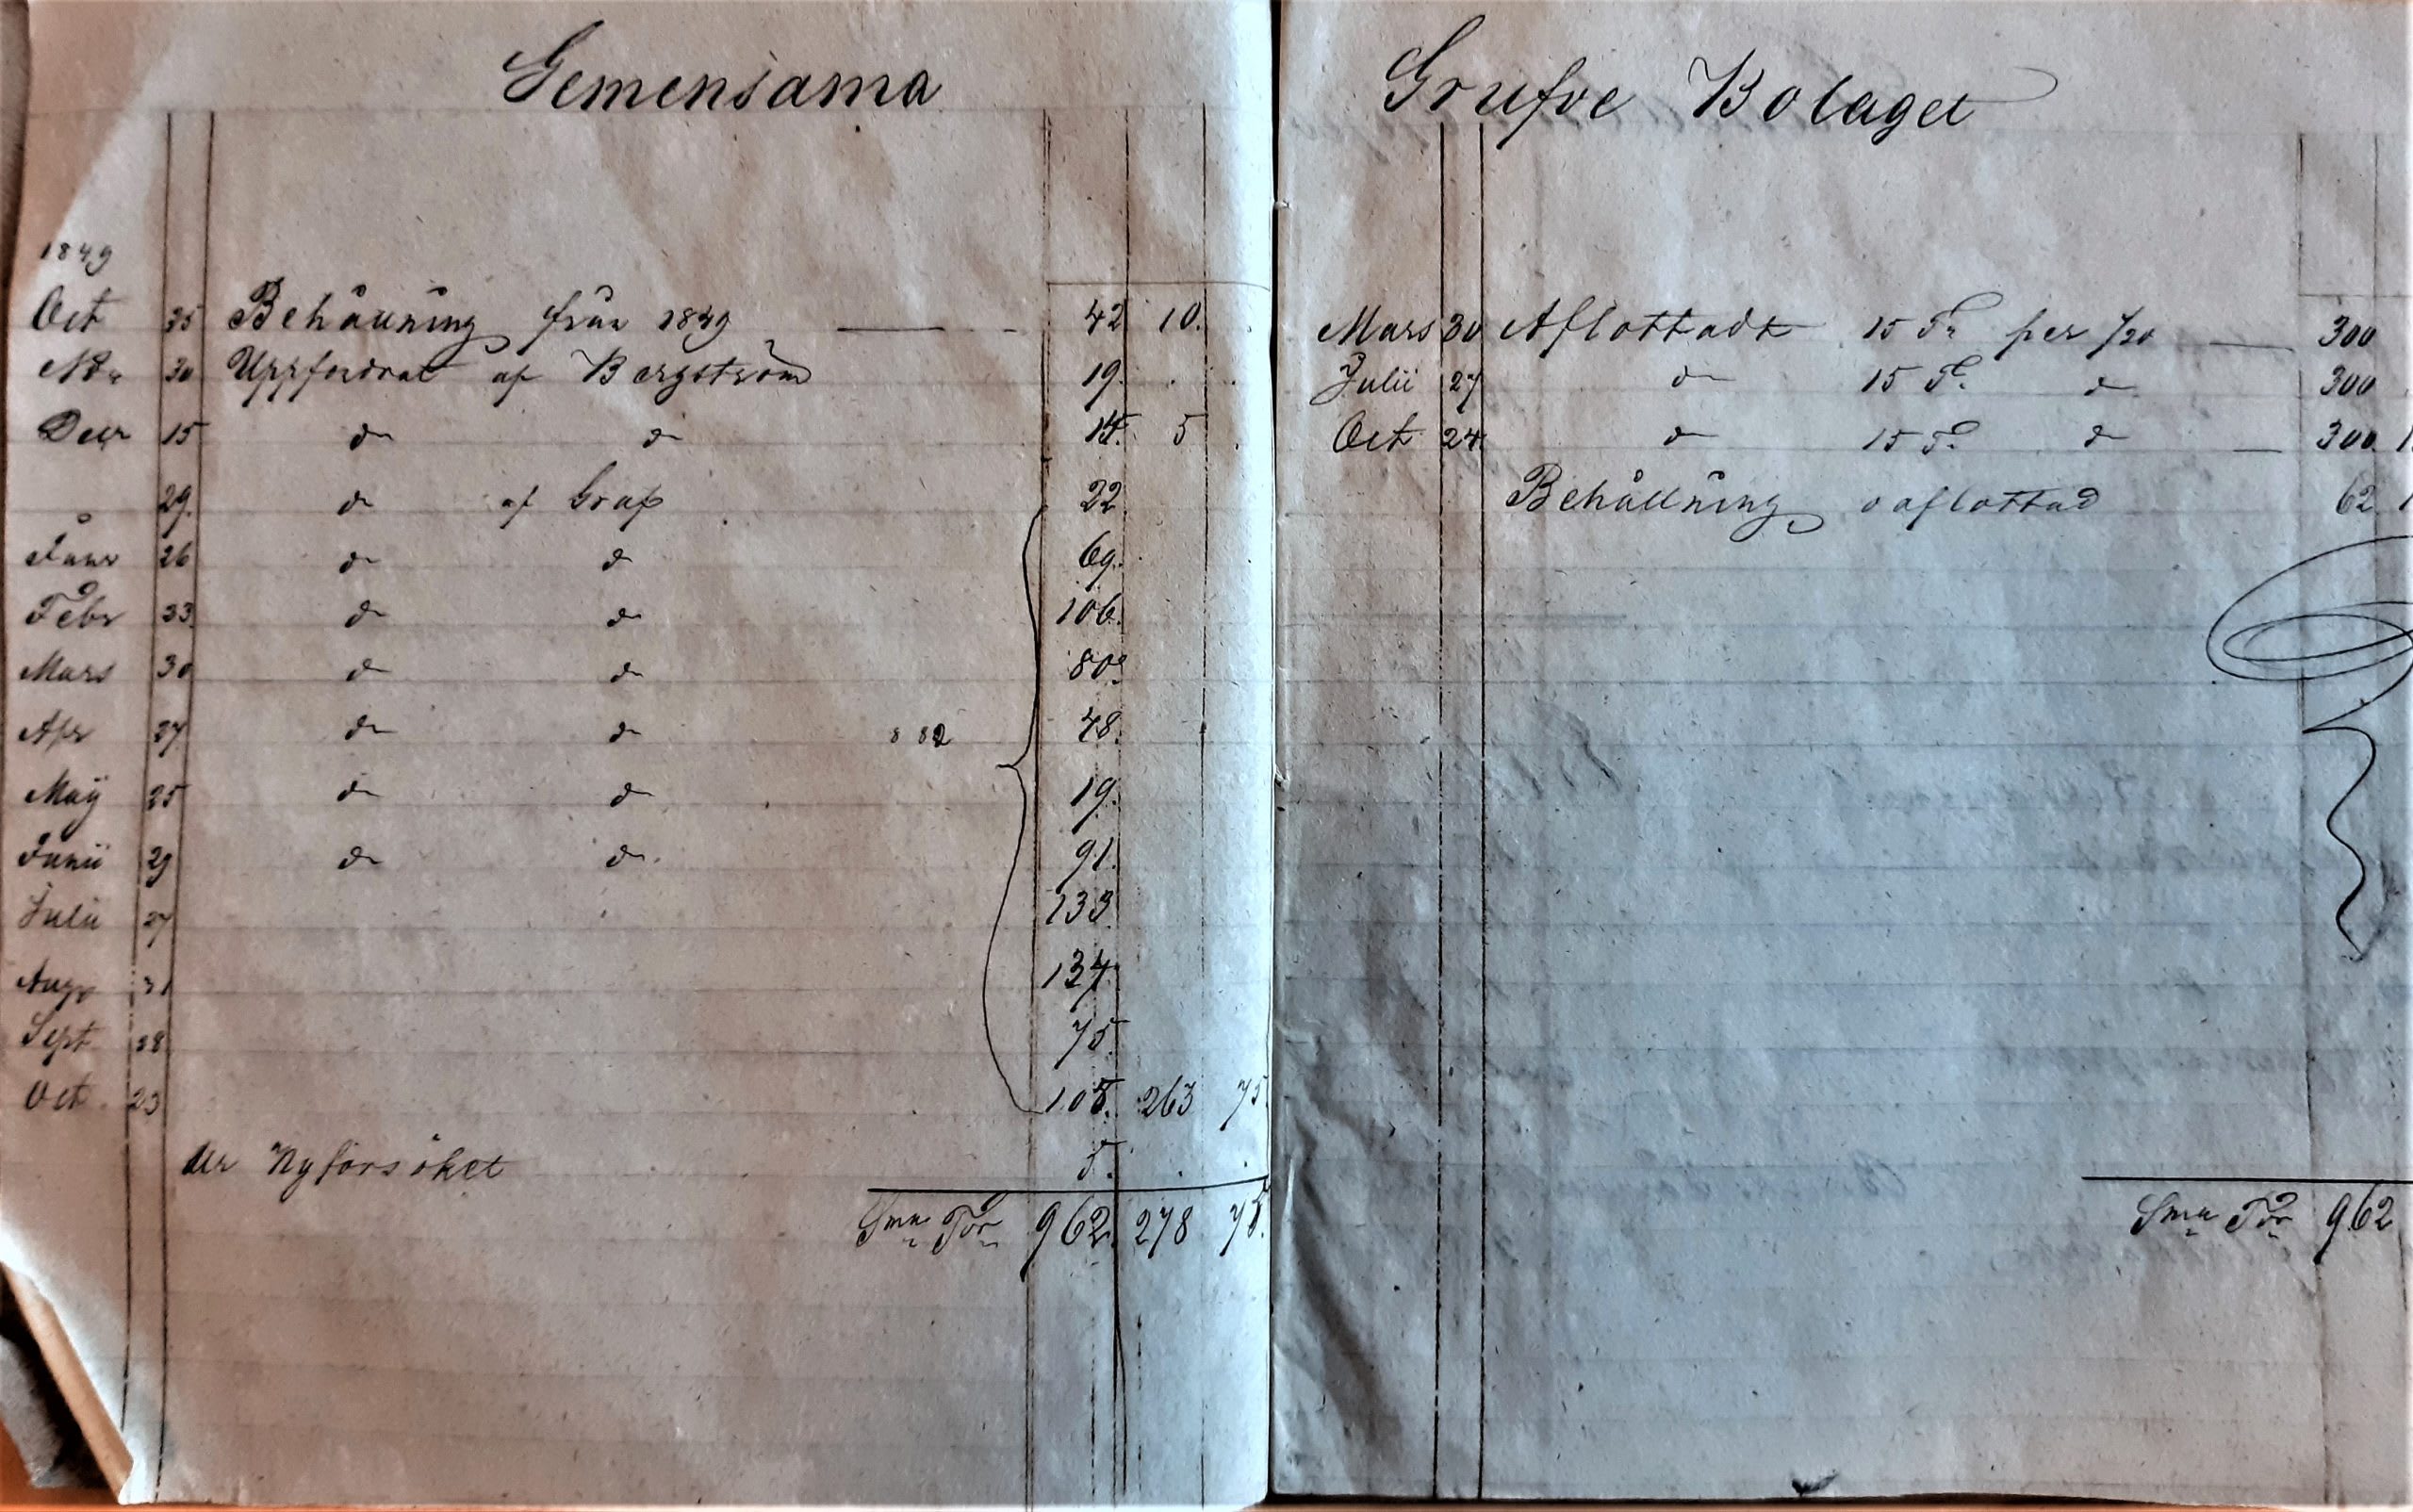 Gemensama
1849
Oct 25 Behållning från 1849 — 42 10.
Nov 30 Uppfordrat af Bergström 19.
Decr 15 do do 14. 5
29. do af Graf 22
Janr 26 do do 69.
Febr 23. do do 106.
Mars 30 do do 80.
Apr 27 do do 882 48.
Maij 25 do do 19.
Junii 29 do do 91.
Julii 27 133
Aug 31 134.
Sept 28 75.
Oct 23 105. 263 75.
Ur Nyförsöket 5.
Sma Tor 962. 278 75.
Grufve Bolaget
Mars 30 Aflottadt 15 Fr per 1/20 — 300
Julii 27 do 15 Fr do 300
Oct 24. do 15 Fr do — 300. 1
Behållning oaflottad 62 1
Sma Tor 962